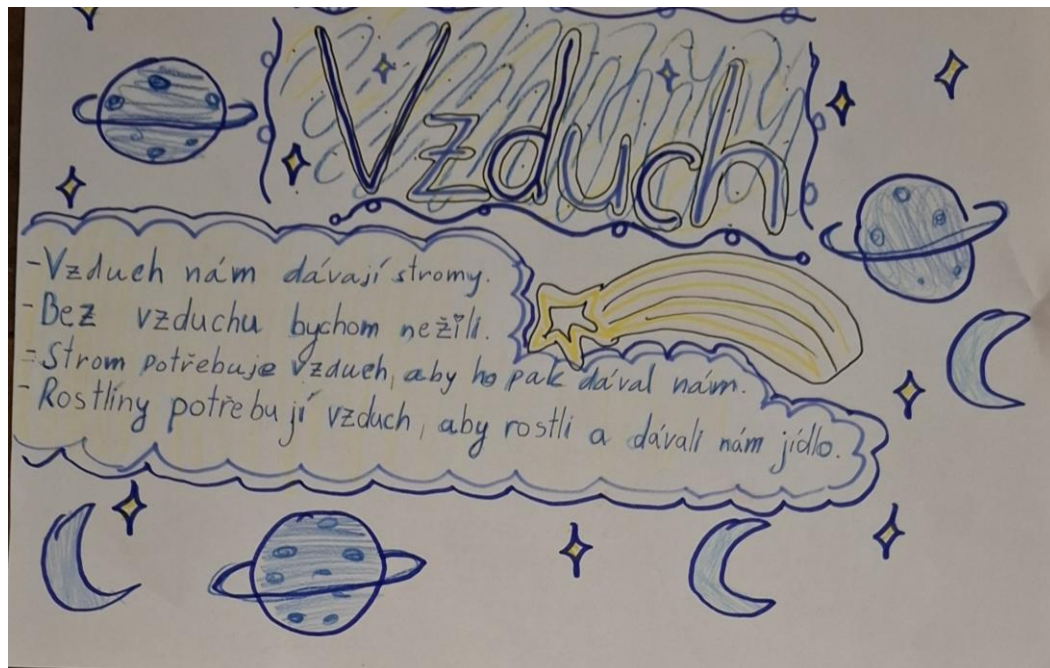 Vzduch
-Vzduch nám dávají stromy.
-Bez vzduchu bychom nežili.
-Strom potřebuje vzduch, aby ho pak dával nám.
-Rostliny potřebují vzduch, aby rostli a dávali nám jídlo.